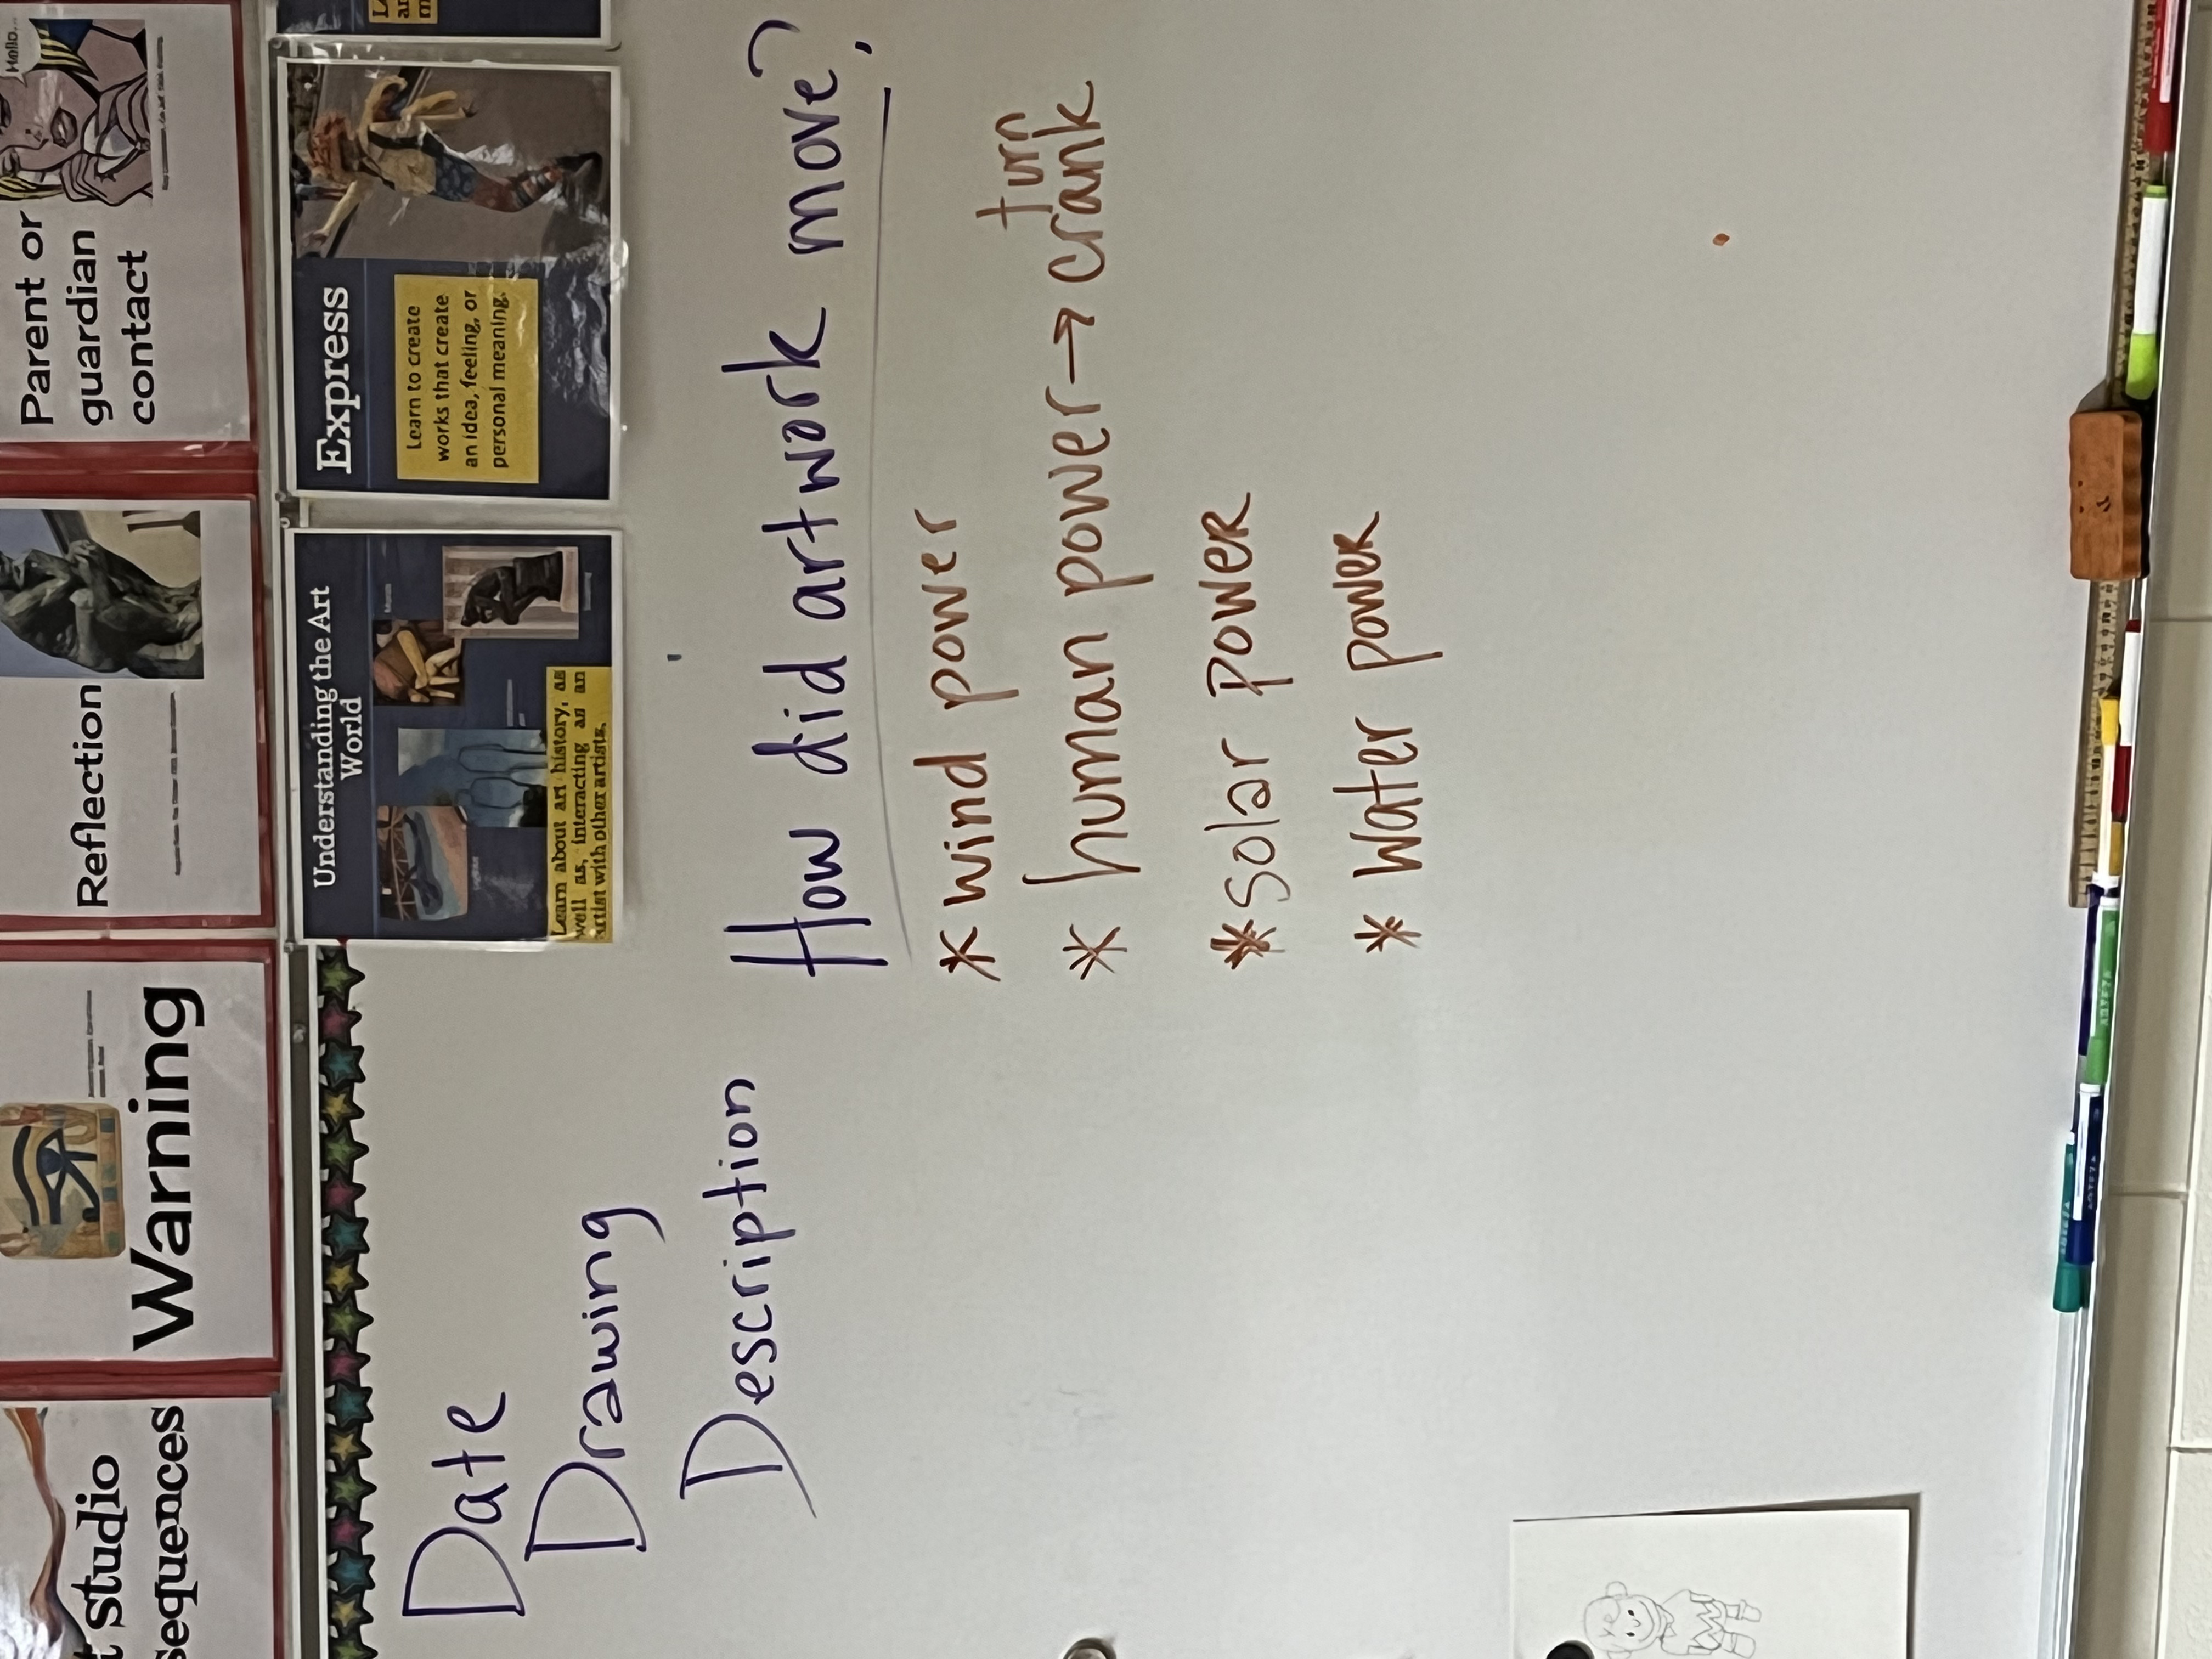 Hello...
Parent or
guardian
contact
Reflection
Warning
studio
sequences
Express
Learn to create
works that create
an idea, feeling, or
personal meaning.
Understanding the Art
World
Learn about art history, as
well as, interacting as an
artist with other artists.
Date
Drawing
Description
How did artwork move?
* wind power
* human power → turn crank
* solar power
* water power
ARTEZA
ARTEZA
ARTEZA